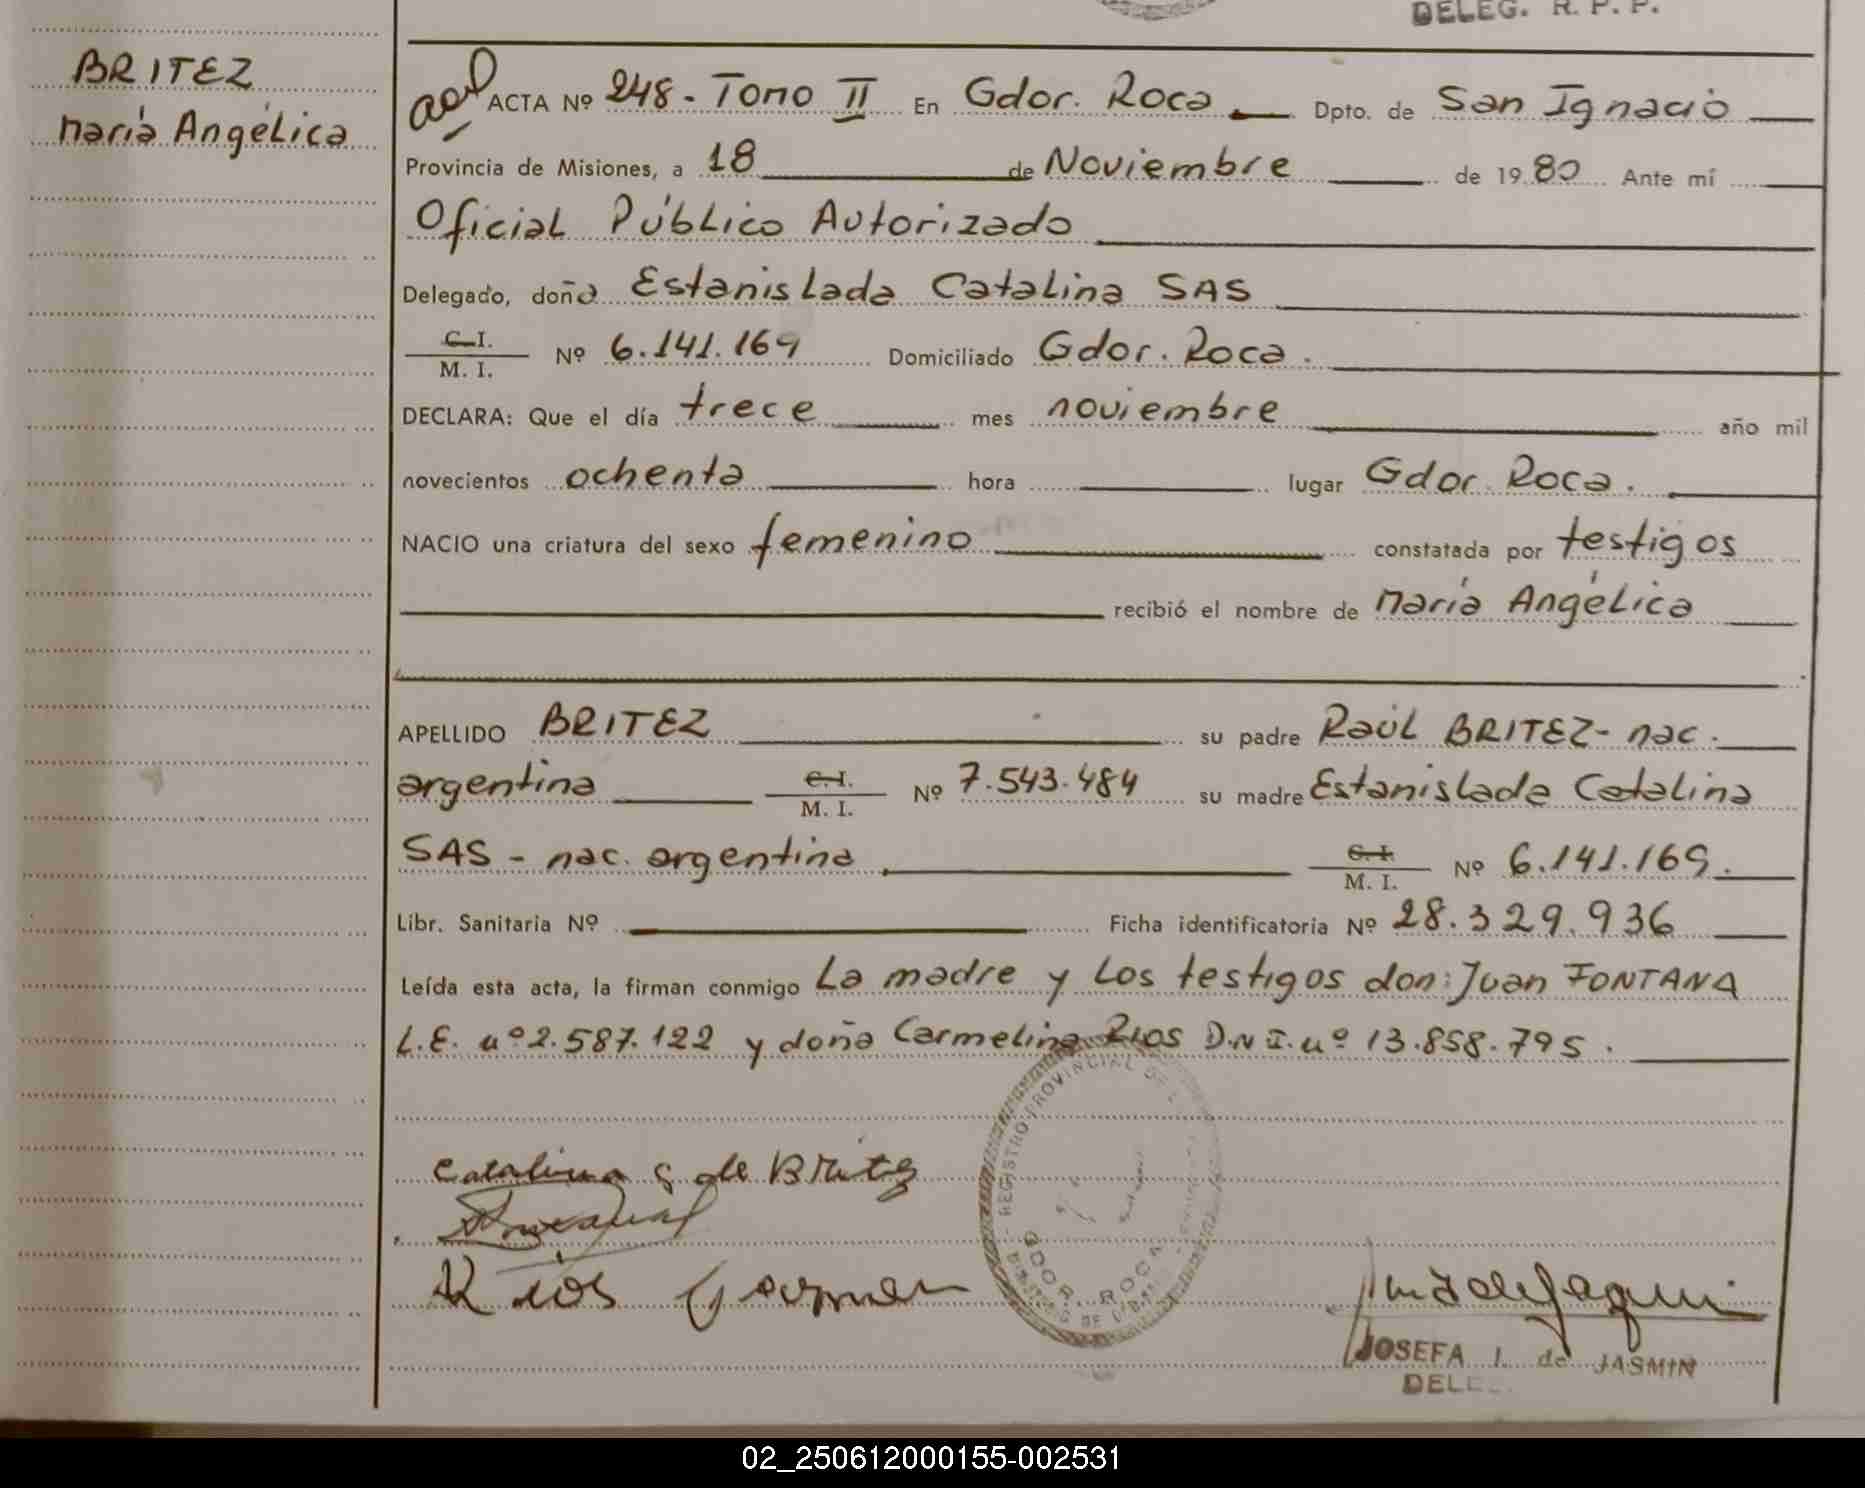 DELEG. R. P. P.
BRITEZ
María Angélica
ACTA Nº 248 - Tomo II En Gdor. Roca Dpto. de San Ignacio
Provincia de Misiones, a 18 de Noviembre de 1980 Ante mí
Oficial Público Autorizado
Delegado, doña Estanislada Catalina SAS
C.I.
M. I. Nº 6.141.169 Domiciliado Gdor. Roca.
DECLARA: Que el día trece mes noviembre año mil
novecientos ochenta hora lugar Gdor. Roca.
NACIO una criatura del sexo femenino constatada por testigos
recibió el nombre de María Angélica
APELLIDO BRITEZ su padre Raúl BRITEZ - nac.
argentina C.I. M. I. Nº 7.543.484 su madre Estanislada Catalina
SAS - nac. argentina C.I. M. I. Nº 6.141.169.
Libr. Sanitaria Nº Ficha identificatoria Nº 28.329.936
Leída esta acta, la firman conmigo La madre y los testigos don: Juan FONTANA
L.E. nº 2.587.122 y doña Carmelina Rios D.N.I. nº 13.858.795.
REGISTRO PROVINCIAL DE L
GDOR. ROCA
Catalina S de Britez
Rios Carmen
JOSEFA I. de JASMIN
DELE
02_250612000155-002531